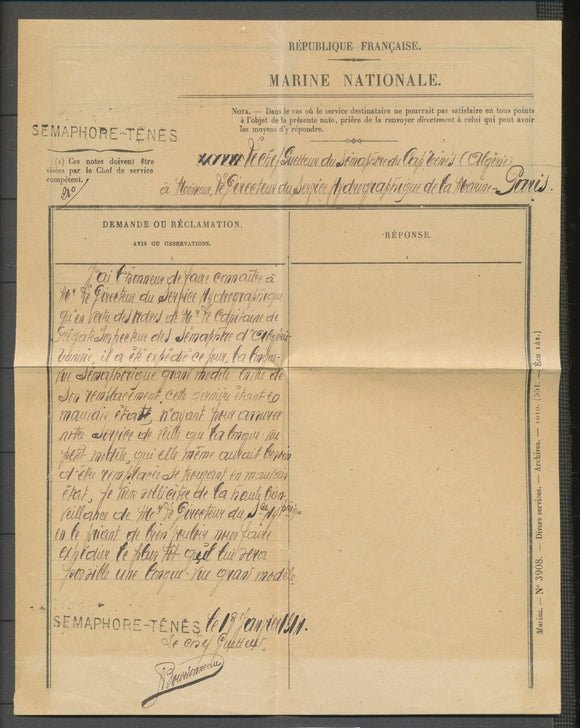 RÉPUBLIQUE FRANÇAISE.
MARINE NATIONALE.
NOTA. — Dans le cas où le service destinataire ne pourrait pas satisfaire en tous points
à l'objet de la présente note, prière de la renvoyer directement à celui qui peut avoir
les moyens d'y répondre.
SEMAPHORE-TÉNÈS
(1) Ces notes doivent être
visées par le Chef de service
compétent.
Le chef Guetteur du Sémaphore du Cap Ténès (Algérie)
à Monsieur le Directeur du Service Hydrographique de la Marine - Paris.
DEMANDE OU RÉCLAMATION,
AVIS OU OBSERVATIONS.
1
RÉPONSE.
2
J'ai l'honneur de faire connaître à
Mr le Directeur du Service Hydrographique
qu'en vertu des ordres de Mr le Capitaine de
Frégate Inspecteur des Sémaphores d'Algérie
Tunisie, il a été expédié ce jour, la longue
vue Sémaphorique grand modèle en vue de
son remplacement, cette dernière étant en
mauvais état, n'ayant pour assurer
notre service de veille que la longue-vue
petit modèle, qui elle même aurait besoin
d'être remplacée se trouvant en mauvais
état, je viens solliciter de la haute bien
veillance de Mr le Directeur du
en le priant de bien vouloir nous faire
expédier le plus tôt qu'il lui sera
possible une longue-vue grand modèle
SEMAPHORE-TÉNÈS le 19 Janvier 1911.
Le chef Guetteur
Marine. — N° 3908. — Divers services. — Archives. —